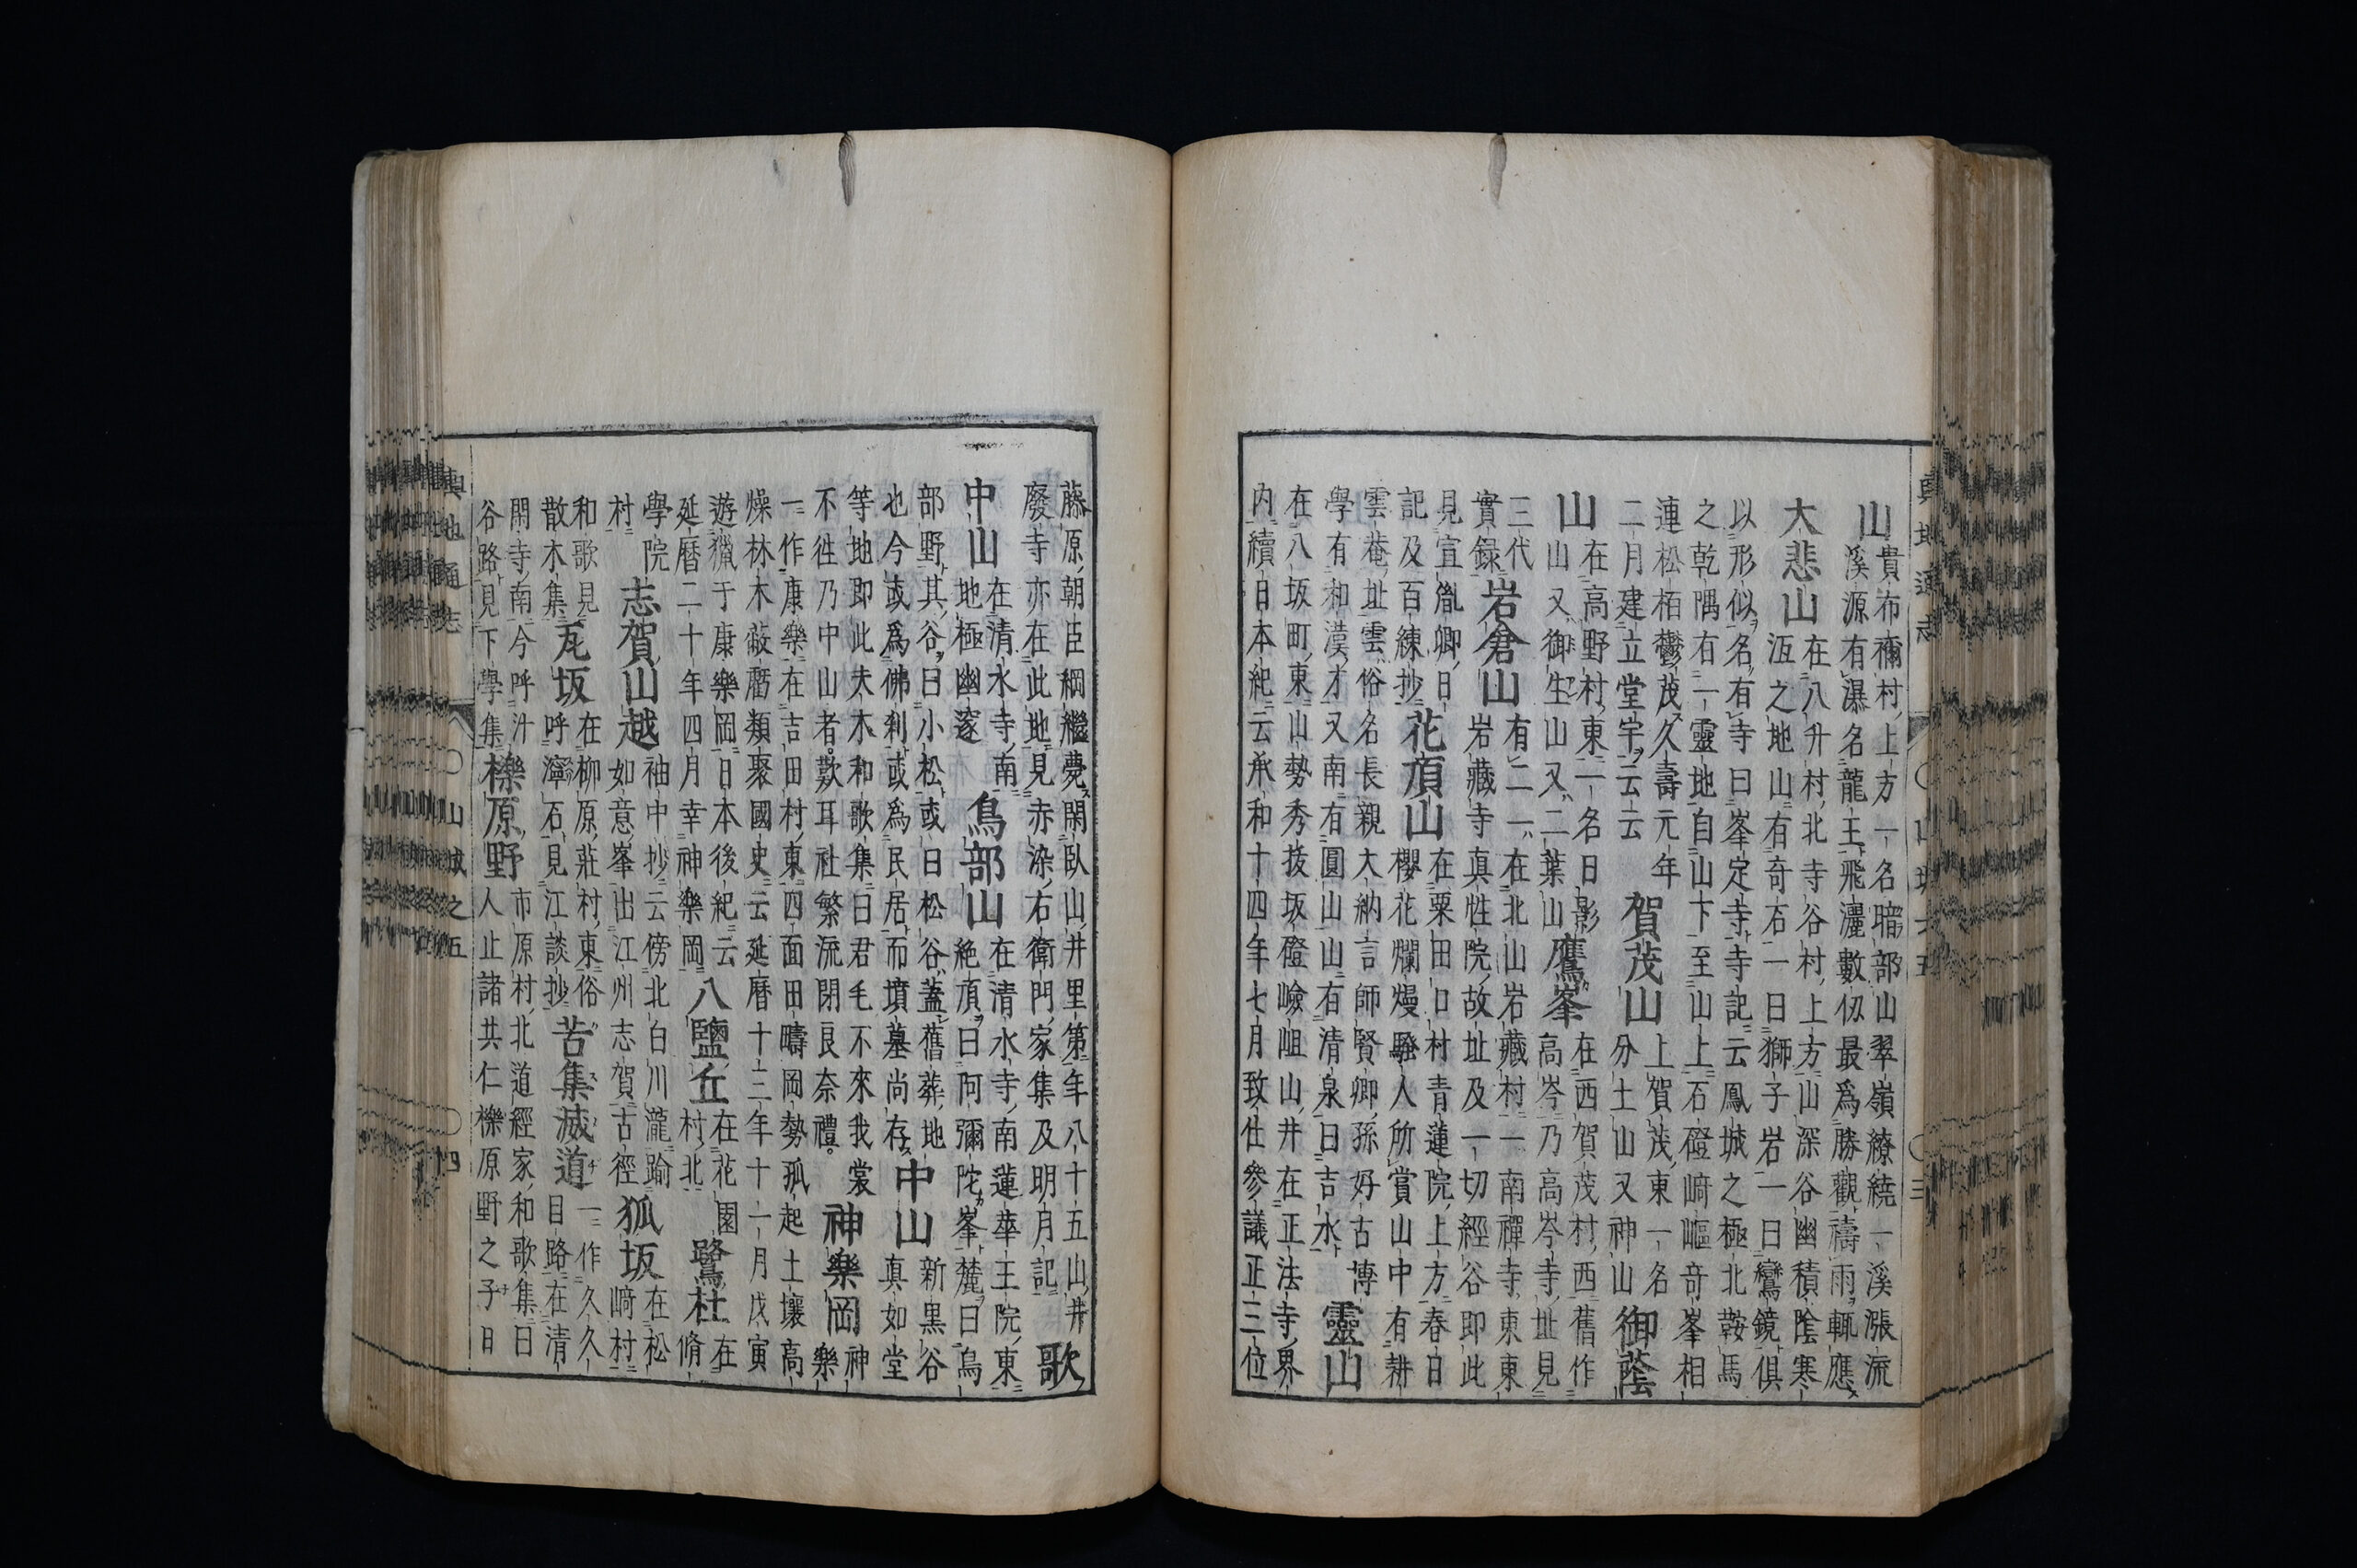 輿地通志 山城之五 三
山
貴布禰村上方一名暗部山翠嶺繚繞一溪漲流
溪源有瀑名龍王飛灑數仭最爲勝觀禱雨輒應
大悲山
在八升村北寺谷村上方山深谷幽積陰寒
沍之地山有奇石一曰獅子岩一曰鸞鏡俱
以形似名有寺曰峯定寺寺記云鳳城之極北鞍馬
之乾隅有一靈地自山下至山上石磴﨑嶇奇峯相
連松栢鬱茂久壽元年
二月建立堂宇云云
賀茂山
上賀茂東一名
分土山又神山
御蔭
山
在高野村東一名日影
山又御生山又二葉山
鷹峯
在西賀茂村西舊作
高岑乃高岑寺址見
三代
實録
岩倉山
有二一在北山岩藏村一南禪寺東東
岩藏寺真性院故址及一切經谷即此
見宣胤卿日
記及百練抄
花頂山
在粟田口村青蓮院上方春日
櫻花爛熳騷人所賞山中有耕
雲菴址雲俗名長親大納言師賢卿孫好古博
學有和漢才又南有圓山山有清泉曰吉水
靈山
在八坂町東山勢秀拔坂磴嶮岨山井在正法寺界
内續日本紀云承和十四年七月致仕參議正三位
藤原朝臣綱繼薨閑臥山井里第年八十五山井
廢寺亦在此地見赤染右衛門家集及明月記
歌
中山
在清水寺南
地極幽邃
鳥部山
在清水寺南蓮華王院東
絶頂曰阿彌陀峯麓曰鳥
部野其谷曰小松或曰松谷蓋舊葬地
也今或爲佛刹或爲民居而墳墓尚存
中山
新黒谷
真如堂
等地即此夫木和歌集曰君毛不來我裳
不徃乃中山者歎耳社繁流閉良奈禮
神樂岡
神
樂
一作康樂在吉田村東四面田疇岡勢孤起土壤高
燥林木蔽翳類聚國史云延暦十三年十一月戊寅
遊獵于康樂岡日本後紀云
延暦二十年四月幸神樂岡
八鹽丘
在花園
村北
鷺杜
在
脩
學院
村
志賀山越
袖中抄云傍北白川瀧踰
如意峯出江州志賀古徑
狐坂
在松
﨑村
和歌見
散木集
瓦坂
在柳原莊村東俗
呼濘石見江談抄
苦集滅道
一作久久
目路在清
閑寺南今呼汁
谷路見下學集
櫟原野
市原村北道經家和歌集曰
人止諸共仁櫟原野之子日
輿地通志 山城之五 四